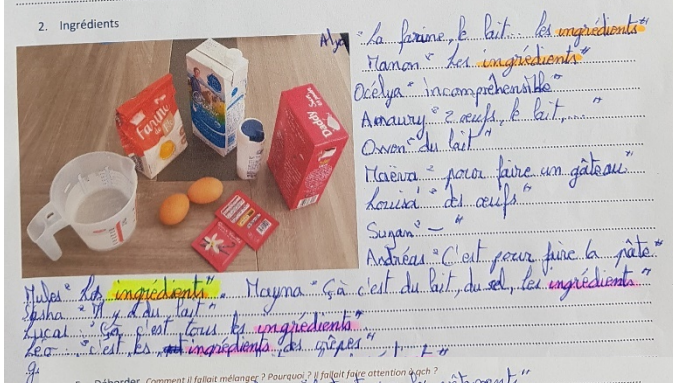 2. Ingrédients
Alya "La farine, le lait... les ingrédients"
Manon "Les ingrédients"
Océlya "incompréhensible"
Amaury "2 œufs, le lait,..."
Owen "du lait"
Maëva "pour faire un gâteau"
Louisa "des œufs"
Suzan " – "
Andréas "C'est pour faire la pâte."
farine
Daddy
Jules "Les ingrédient". Mayna "Çà c'est du lait, du sel, les ingrédients"
Sasha "Il y a du lait"
Lucas "Ça c'est tous les ingrédients".
Léo "c'est les ingrédients des crêpes"
Déborder Comment il fallait mélanger ? Pourquoi ? Il fallait faire attention à qch ?